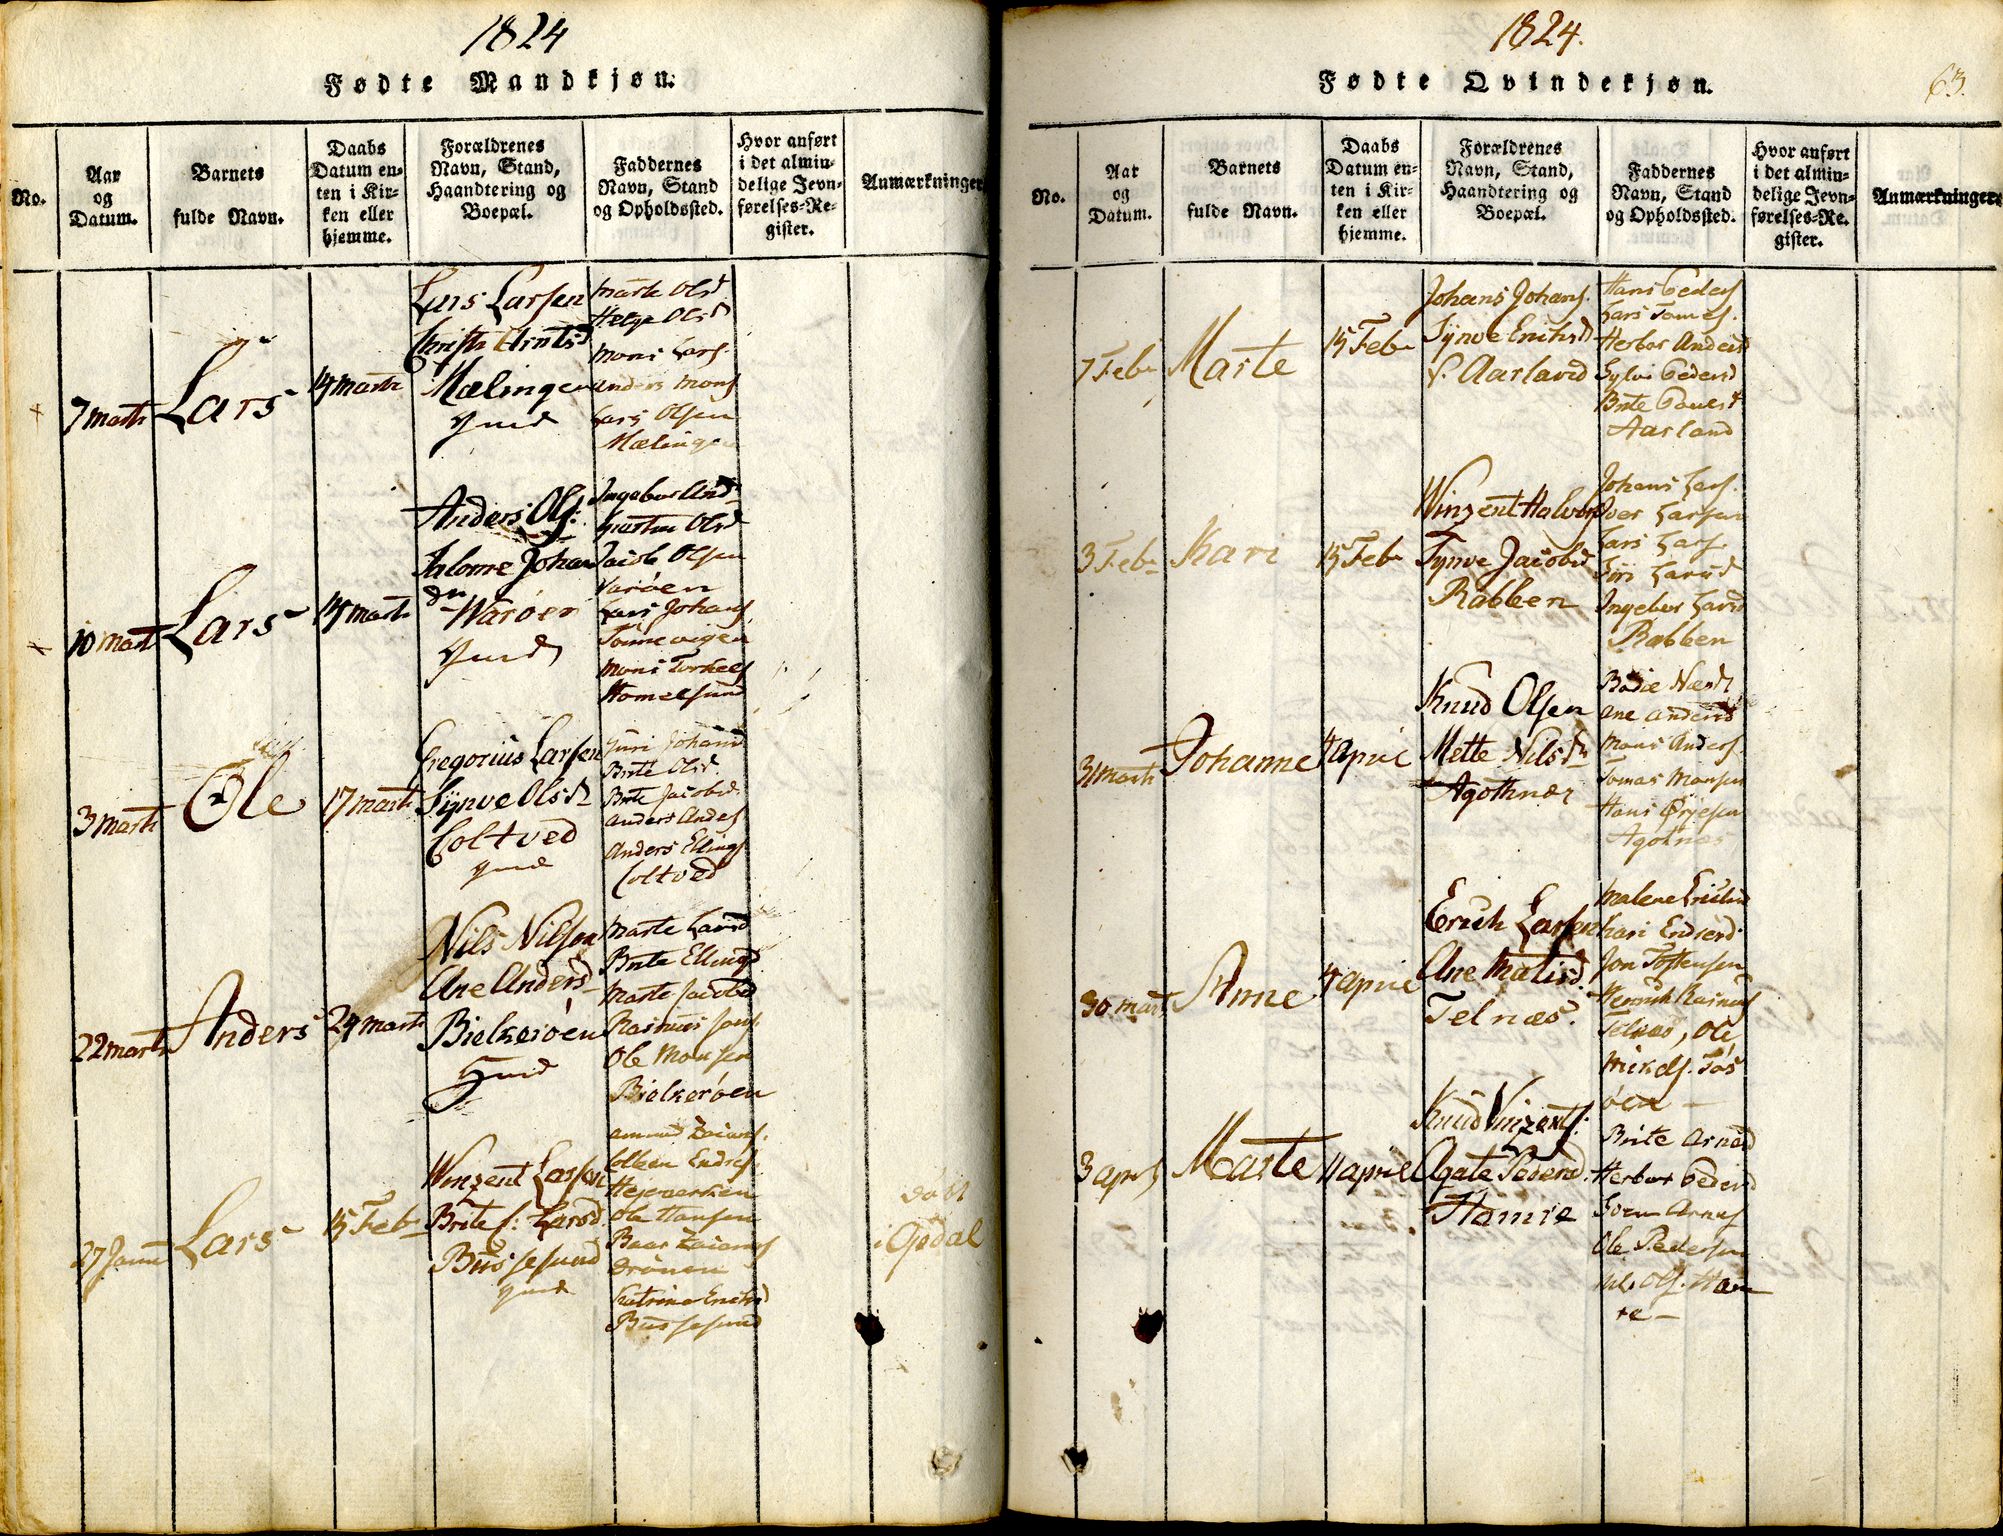 1824
Fødte Mandkjøn.
No.
Aar
og
Datum.
Barnets
fulde Navn.
Daabs
Datum en-
ten i Kir-
ken eller
hjemme.
Forældrenes
Navn, Stand,
Haandtering og
Boepæl.
Faddernes
Navn, Stand
og Opholdssted.
Hvor anført
i det almin-
delige Jevn-
førelses-Re-
gister.
Anmærkninger
7 marti
Lars
14 marti
Lars Larsen
Mælingen
Marte Olsd
Helge Olsd
Mons Lars.
Anders Mons
Lars Olsen
Mælingen
10 marti
Lars
14 marti
Anders Ols:
Salome Johan
dr
Warøen
Ingebor And
Olsd
Jacob Olsen
Varøen
Lars Johans
Mons Torkels
Homelsund
3 marti
Ole
17 marti
Gregorius Larsen
Synve Olsd
Coltved
Johansd
Brite Olsd
Brite Jacobsd
Anders Anders
Anders Ellings
Coltved
22 marti
Anders
24 marti
Nils Nilsen
Ane Andersd
Bielkerøen
Marte Larsd
Brite Ellingsd
Marte Jacobsd
Rasmus
Ole Monsen
Bielkerøen
27 Janu
Lars
15 Feb
Winzent Larsen
Brite Larsd
Bussesund
Ole Hansen
Drönen
Katrina Erichsd
Bussesund
døbt
i Opdal
1824.
63.
Fødte Qvindekjøn.
No.
Aar
og
Datum.
Barnets
fulde Navn.
Daabs
Datum en-
ten i Kir-
ken eller
hjemme.
Forældrenes
Navn, Stand,
Haandtering og
Boepæl.
Faddernes
Navn, Stand
og Opholdssted.
Hvor anført
i det almin-
delige Jevn-
førelses-Re-
gister.
Anmærkninger
7 Feb
Marte
15 Feb
Johans Johans.
Synve Erichsd
Aarland
Hans Peders
Lars Tomes.
Herbor Andersd
Sylvi Pedersd
Brite Povelsd
Aarland
3 Feb
Kari
15 Feb
Winzent Halvors
Synve Jacobsd
Rabben
Johans Lars.
Iver Larsen
Lars Lars.
Siri Larsd
Ingebor Larsd
Rabben
31 marti
Johanne
4 April
Knud Olsen
Mette Nilsdr
Agothnæs
Ane Andersd
Mons Anders.
Tomas Monsen
Hans
Agotnæs
30 mart
Anne
4 April
Erich Larsen
Ane Matisd.
Telnæs.
Malene Erichsd
Kari Endresd
Jon Tostensen
Henrich Rasmus
Telnæs, Ole
Mikels. Tøs
øen
3 April
Marte
11 April
Knud Vinzents.
Agate Pedersd
Hamre
Brite Arnesd
Herbor Pedersd
Sven Arnes
Ole Pedersen
Nils Ols. Ham
re